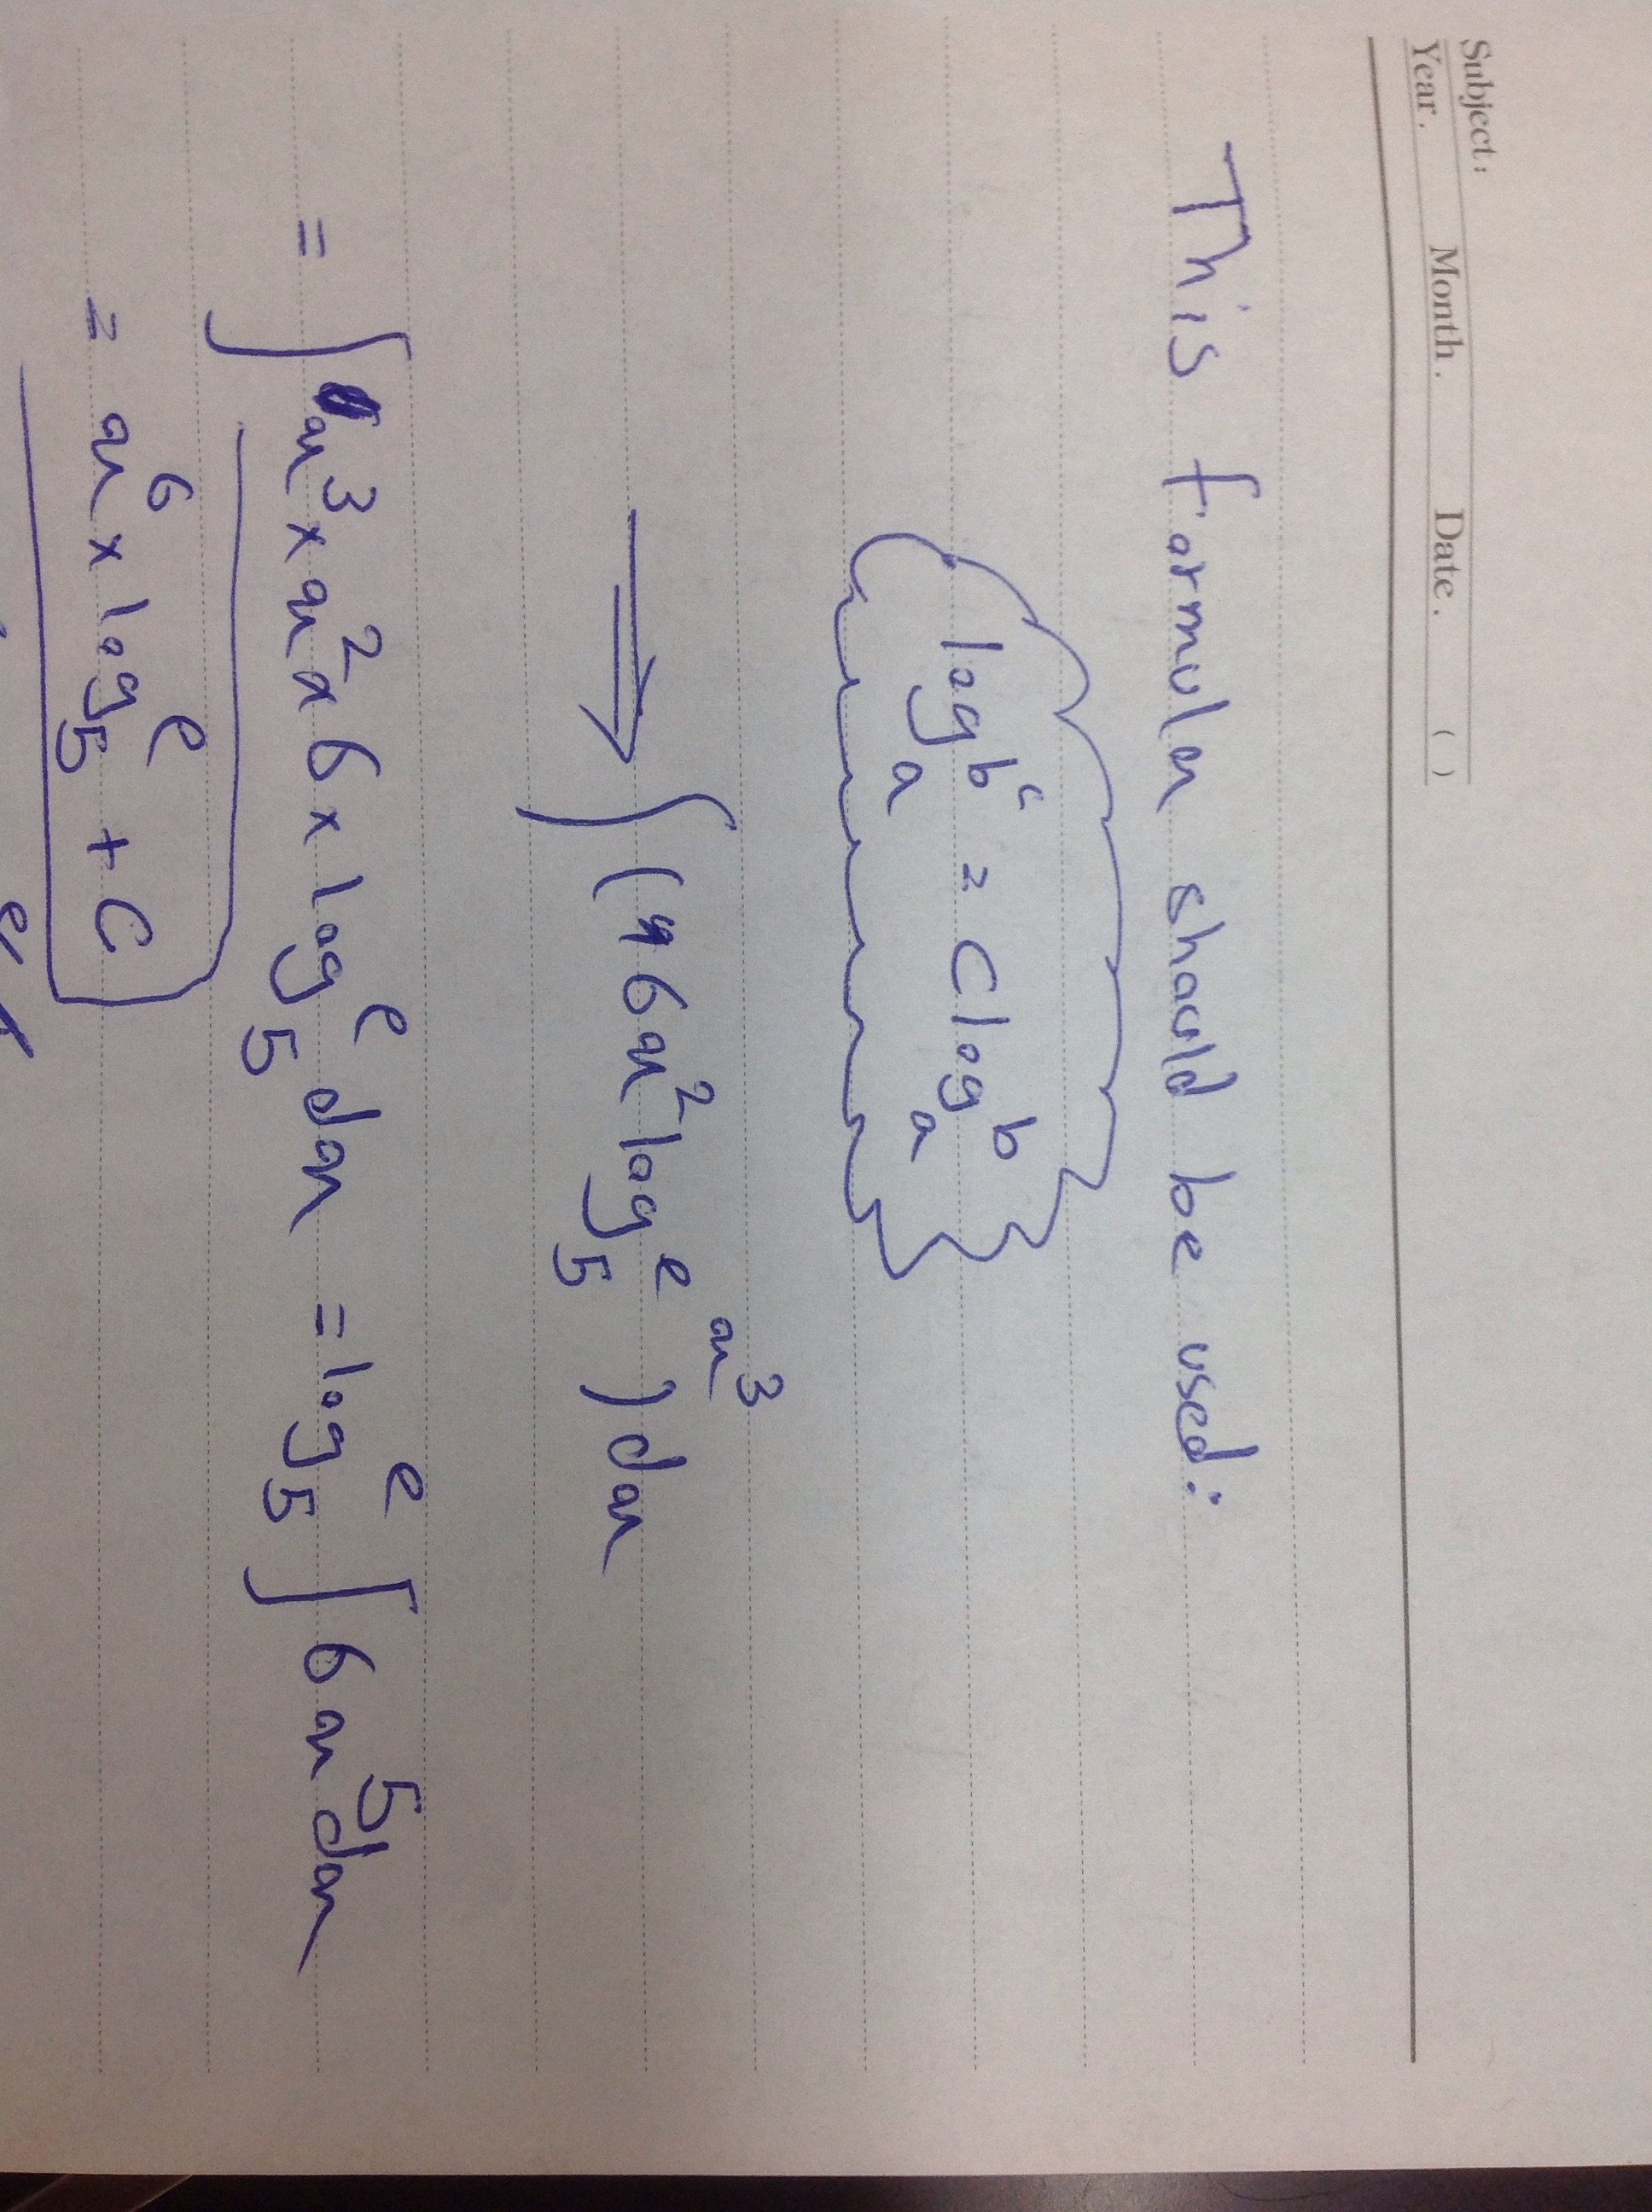 Subject:
Year. Month. Date. ( )
This formula should be used:
log_a b^c = c log_a b
⇒ ∫( 6x² log_5 e^x³ ) dx
= ∫ x³ × x² × 6 × log_5 e dx = log_5 e ∫ 6x⁵ dx
= x⁶ × log_5 e + C